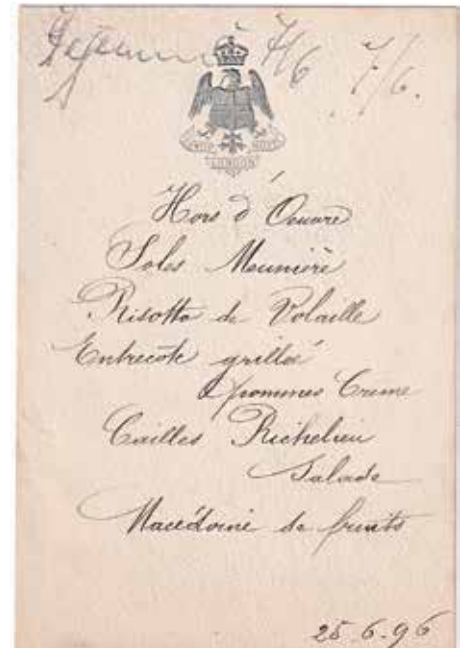 Dejeuner 7/6 7/6.
SAVOY HOTEL
LONDON
Hors d'Oeuvre
Soles Meunière
Risotto de Volaille
Entrecôte grillée
pommes Crème
Cailles Richelieu
Salade
Macédoine de fruits
25.6.96